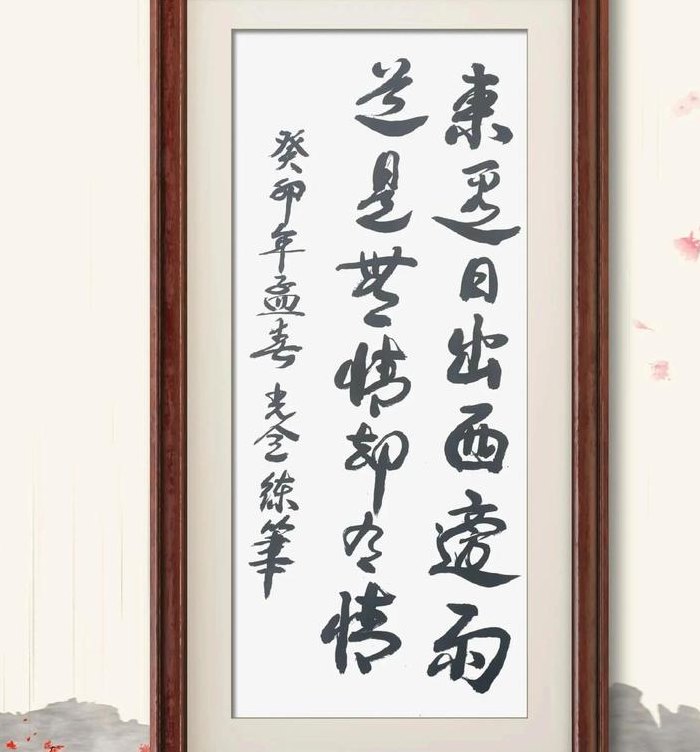 東邊日出西邊雨
道是無情却有情
癸卯年孟春 光練筆